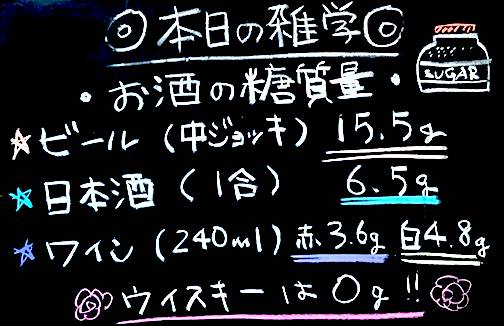 ◎本日の雑学◎
・お酒の糖質量・
SUGAR
☆ビール(中ジョッキ) 15.5g
☆日本酒(1合) 6.5g
☆ワイン(240ml) 赤3.6g 白4.8g
ウィスキーは0g!!